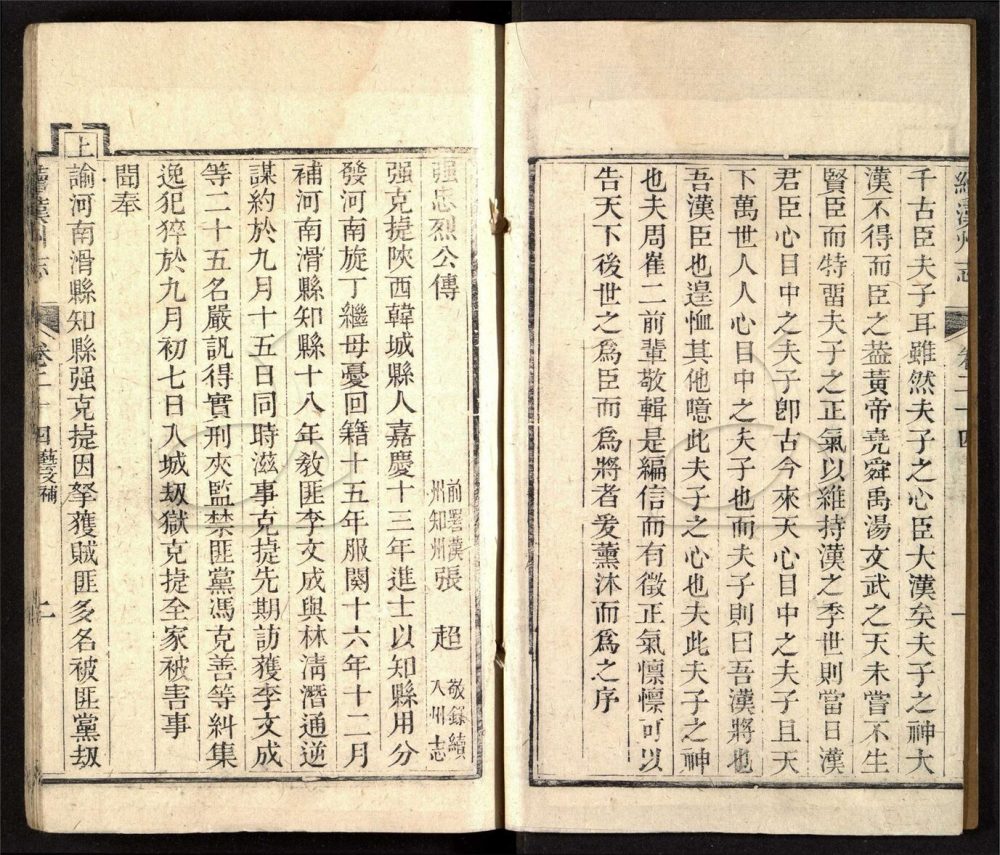 續漢州志 卷二十四 一
千古臣夫子耳雖然夫子之心臣大漢矣夫子之神大
漢不得而臣之葢黃帝堯舜禹湯文武之天未嘗不生
賢臣而特畱夫子之正氣以維持漢之季世則當日漢
君臣心目中之夫子卽古今來天心目中之夫子且天
下萬世人人心目中之夫子也而夫子則曰吾漢將也
吾漢臣也遑恤其他噫此夫子之心也夫此夫子之神
也夫周崔二前輩敬輯是編信而有徵正氣懍懍可以
告天下後世之爲臣而爲將者爰薰沐而爲之序
强忠烈公傳 前署漢州知州張超 敬錄續入州志
强克捷陝西韓城縣人嘉慶十三年進士以知縣用分
發河南旋丁繼母憂回籍十五年服闋十六年十二月
補河南滑縣知縣十八年敎匪李文成與林淸潛通逆
謀約於九月十五日同時滋事克捷先期訪獲李文成
等二十五名嚴訊得實刑夾監禁匪黨馮克善等糾集
逸犯猝於九月初七日入城刼獄克捷全家被害事
聞奉
上諭河南滑縣知縣强克捷因拏獲賊匪多名被匪黨刼
續漢州志 卷二十四 藝文補